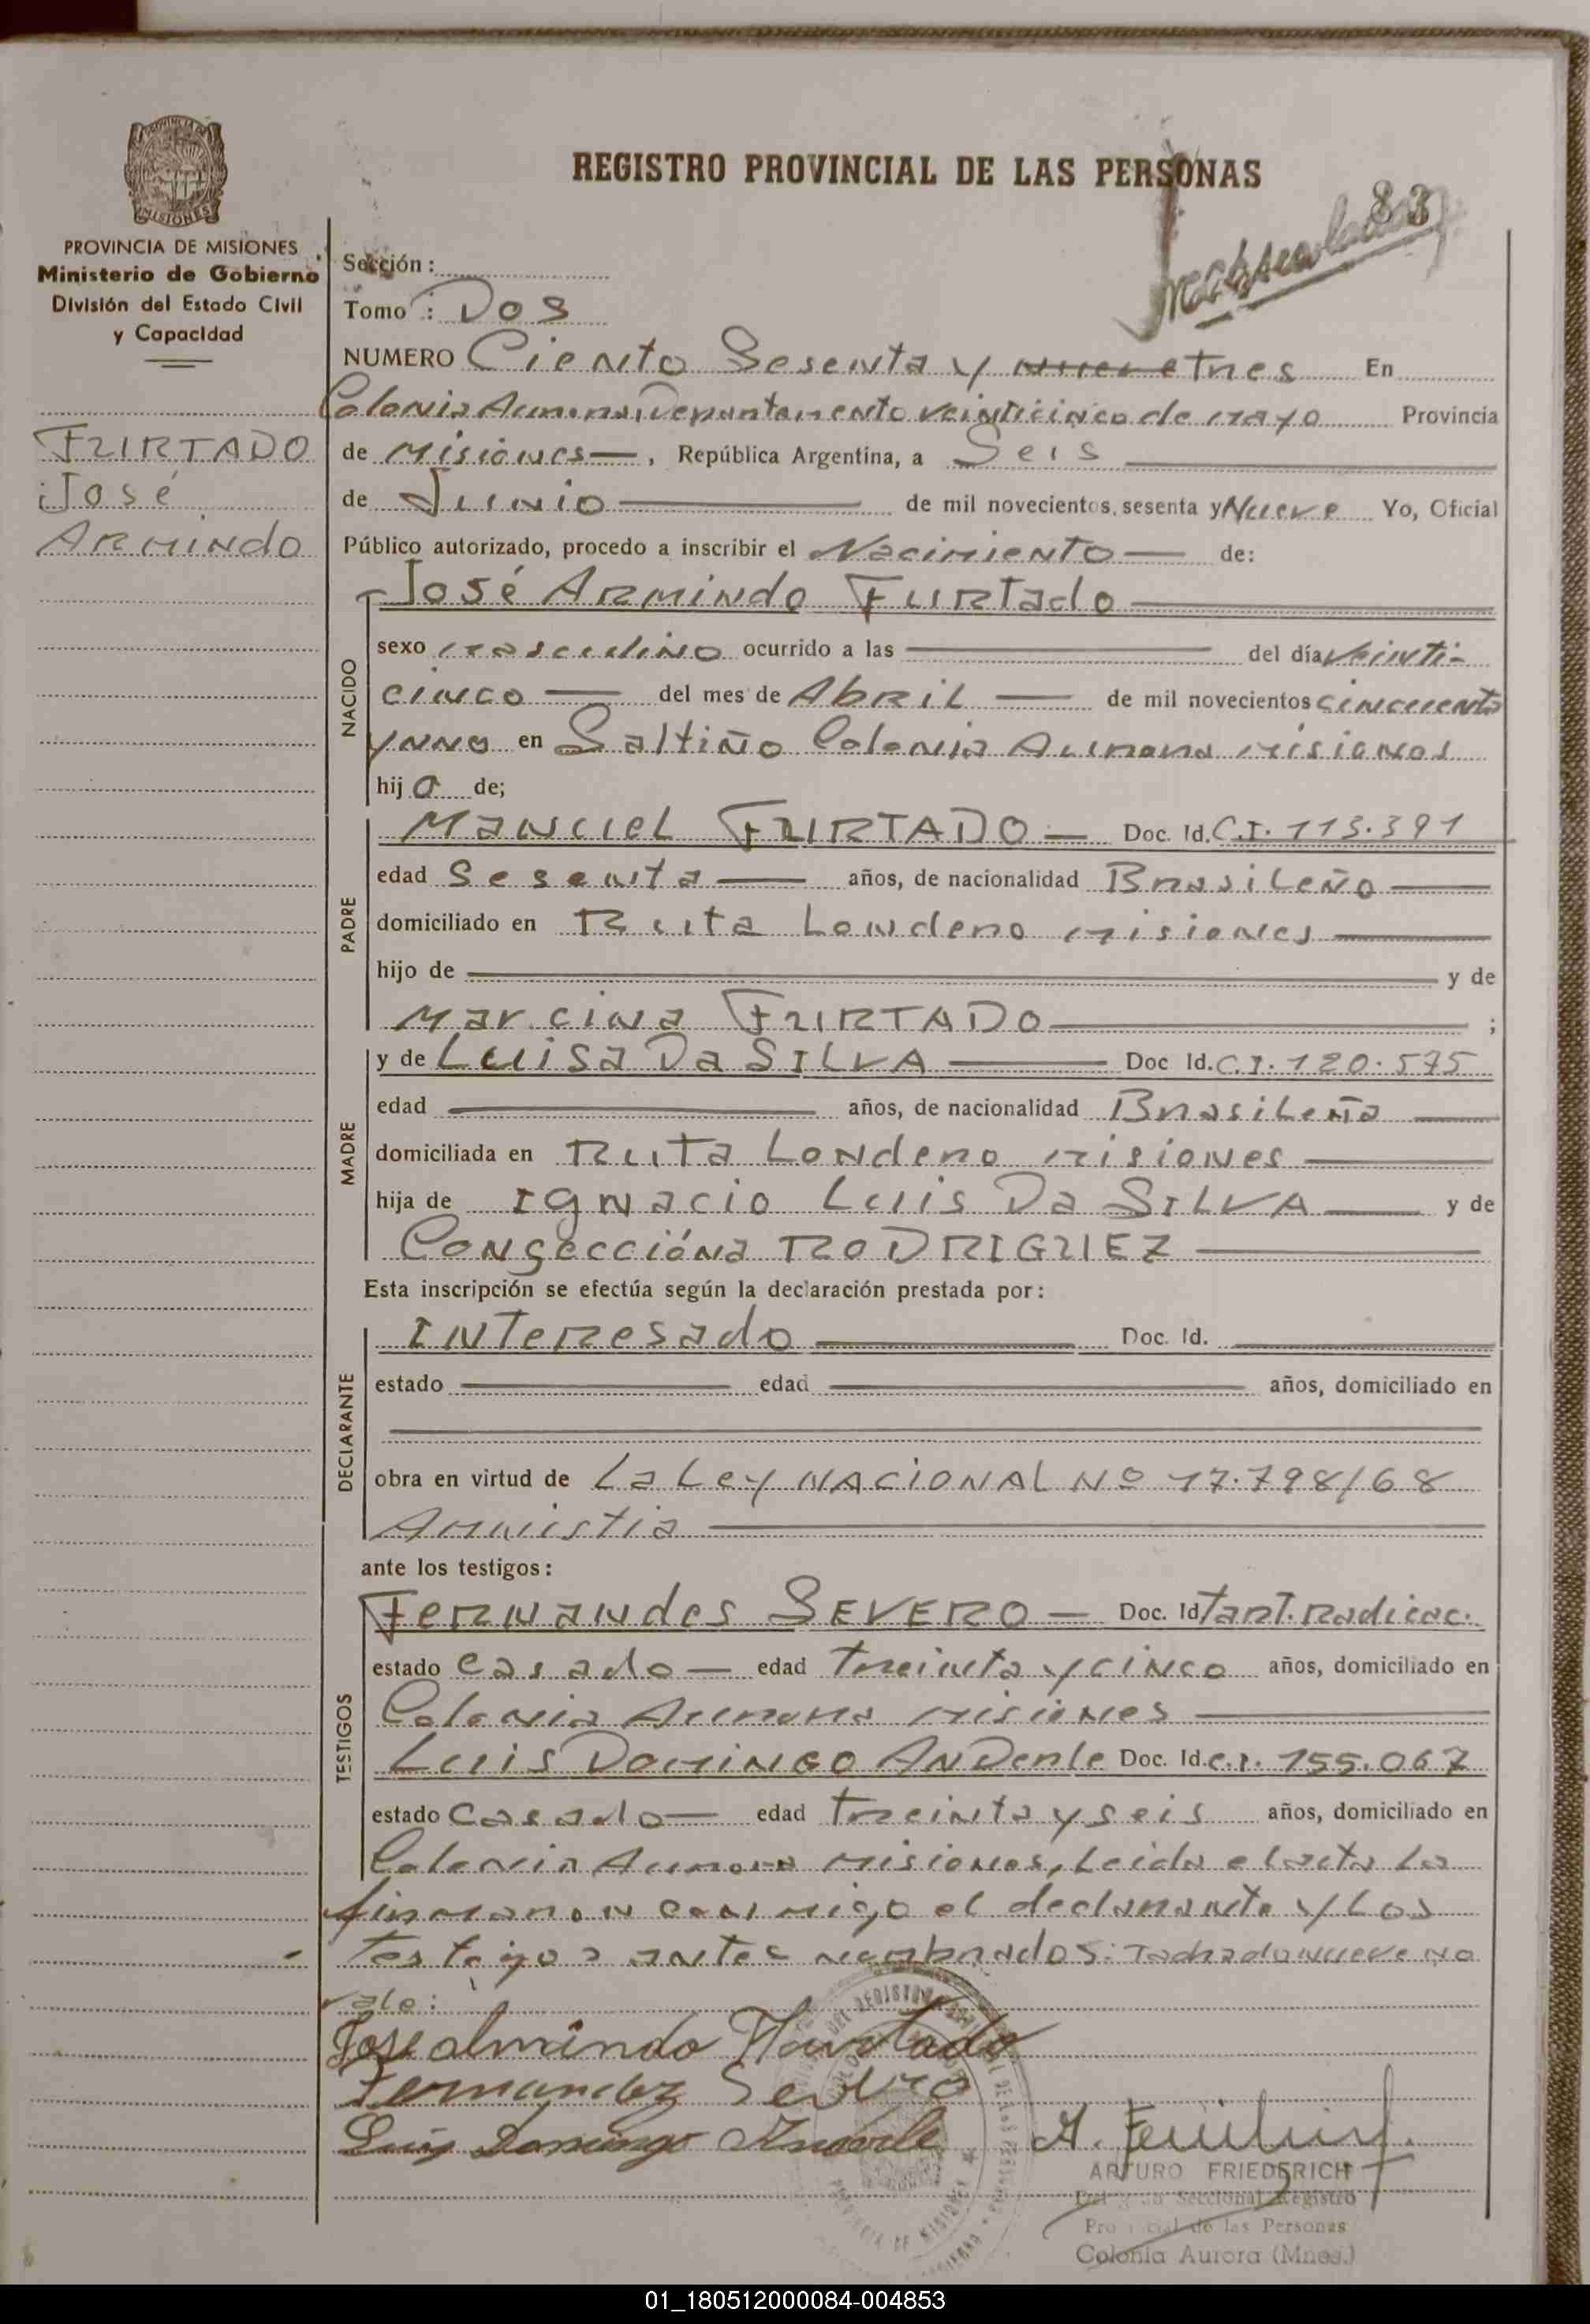 REGISTRO PROVINCIAL DE LAS PERSONAS
83
MISIONES
PROVINCIA DE MISIONES
Ministerio de Gobierno
División del Estado Civil
y Capacidad
FURTADO
José
ARMINDO
Sección:
Tomo: Dos
NUMERO Ciento Sesenta y nueve tres En
Colonia Aurora, Departamento Veinticinco de mayo Provincia
de Misiones, República Argentina, a Seis
de Junio de mil novecientos sesenta y Nueve Yo, Oficial
Público autorizado, procedo a inscribir el Nacimiento de:
José ARMINDO FURTADO
NACIDO
sexo masculino ocurrido a las del día veinti-
cinco del mes de Abril de mil novecientos cincuenta
y uno en Saltiño Colonia Aurora Misiones
hijo de;
PADRE
Manuel FURTADO Doc. Id. C.I. 113.391
edad Sesenta años, de nacionalidad Brasileño
domiciliado en Ruta Londero misiones
hijo de y de
Marcina FURTADO ;
MADRE
y de Luisa Da SILVA Doc. Id. C.I. 120.575
edad años, de nacionalidad Brasileña
domiciliada en Ruta Londero misiones
hija de Ignacio Luis Da SILVA y de
Congeccióna RODRIGUEZ
Esta inscripción se efectúa según la declaración prestada por:
DECLARANTE
INTERESADO Doc. Id.
estado edad años, domiciliado en
obra en virtud de La Ley NACIONAL Nº 17.798/68
Amnistia
ante los testigos:
TESTIGOS
Fernandes SEVERO Doc. Id Tarj. Radicac.
estado Casado edad Treinta y cinco años, domiciliado en
Colonia Aurora misiones
Luis Domingo Anderle Doc. Id. C.I. 155.067
estado Casado edad treinta y seis años, domiciliado en
Colonia Aurora Misiones, Leida el acta la
firmaron conmigo el declarante y Los
testigos antes nombrados: Tachado nueve no
vale:
Jose almindo Hurtado
Fernandez Severo
Luis Domingo Anderle
ARTURO FRIEDERICH
Seccional Registro
Provincial de las Personas
Colonia Aurora (Mnes.)
01_180512000084-004853